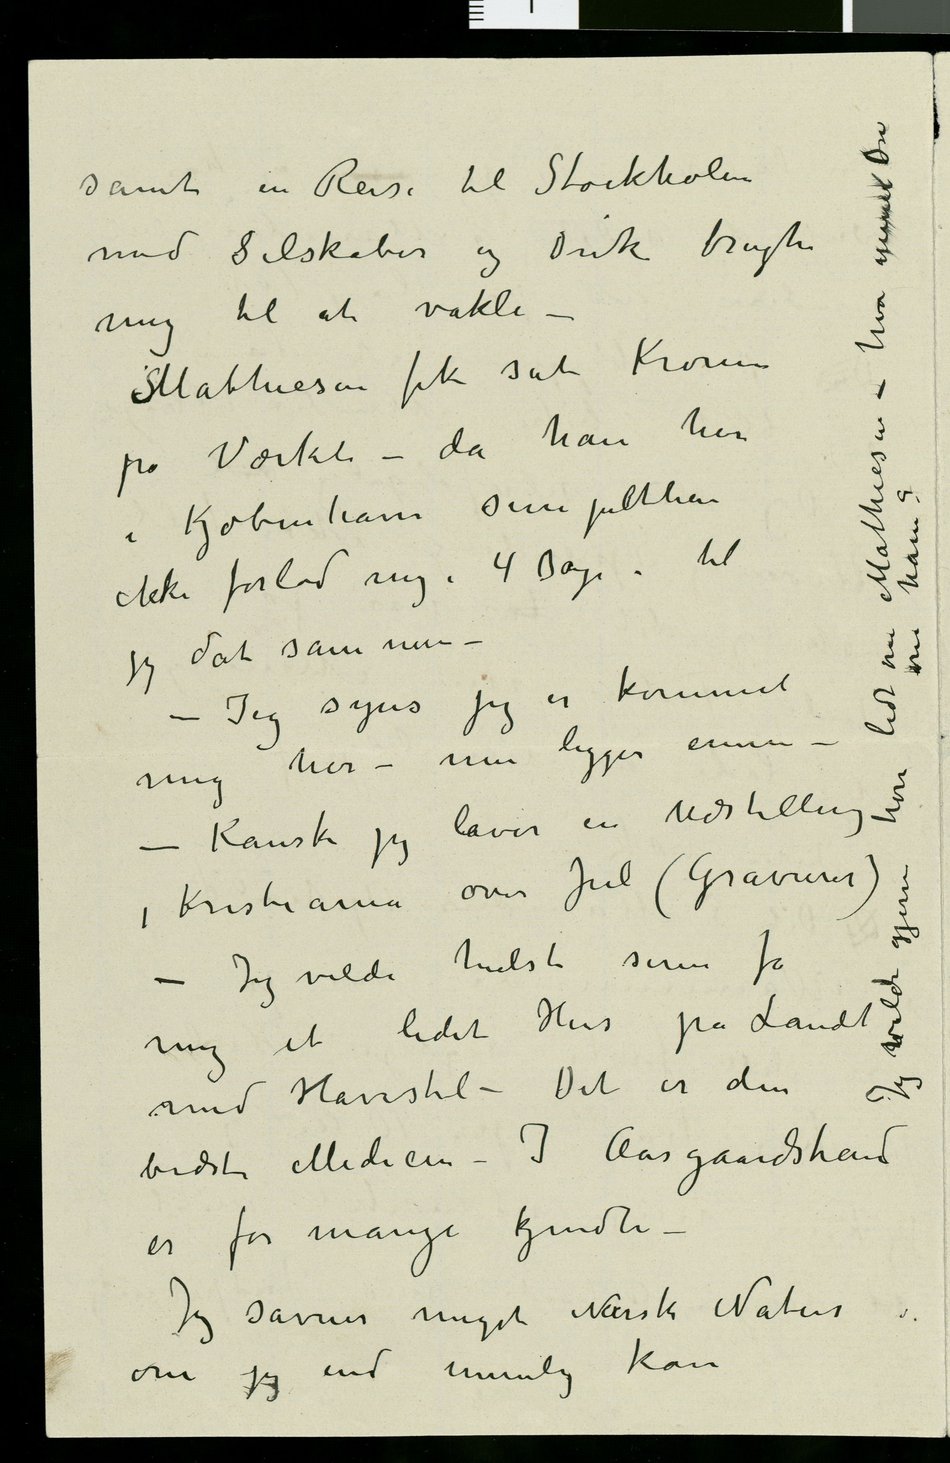 samt en Reise til Stockholm
med Selskaber og Drik bragte
mig til at vakle –
Mathiesen fik sat Kronen
på Værket – da han her
i Kjøbenhavn simpelthen
ikke forlod mig i 4 Dage – til
jeg dat sammen –
– Jeg synes jeg er kommet
mig her – men ligger ennu –
– Kanske jeg laver en Udstilling
i Kristiania over Jul (Gravurer)
– Jeg vilde helst siden få
mig et lidet Hus på Landet
med Havestel – Det er den
bedste Medicin – I Aasgaardstrand
er for mange kjendte –
Jeg savner meget Norsk Natur
om jeg end nemlig kan
Jeg vilde gjerne høre lidt om Mathiesen – hva synes Du
om ham?